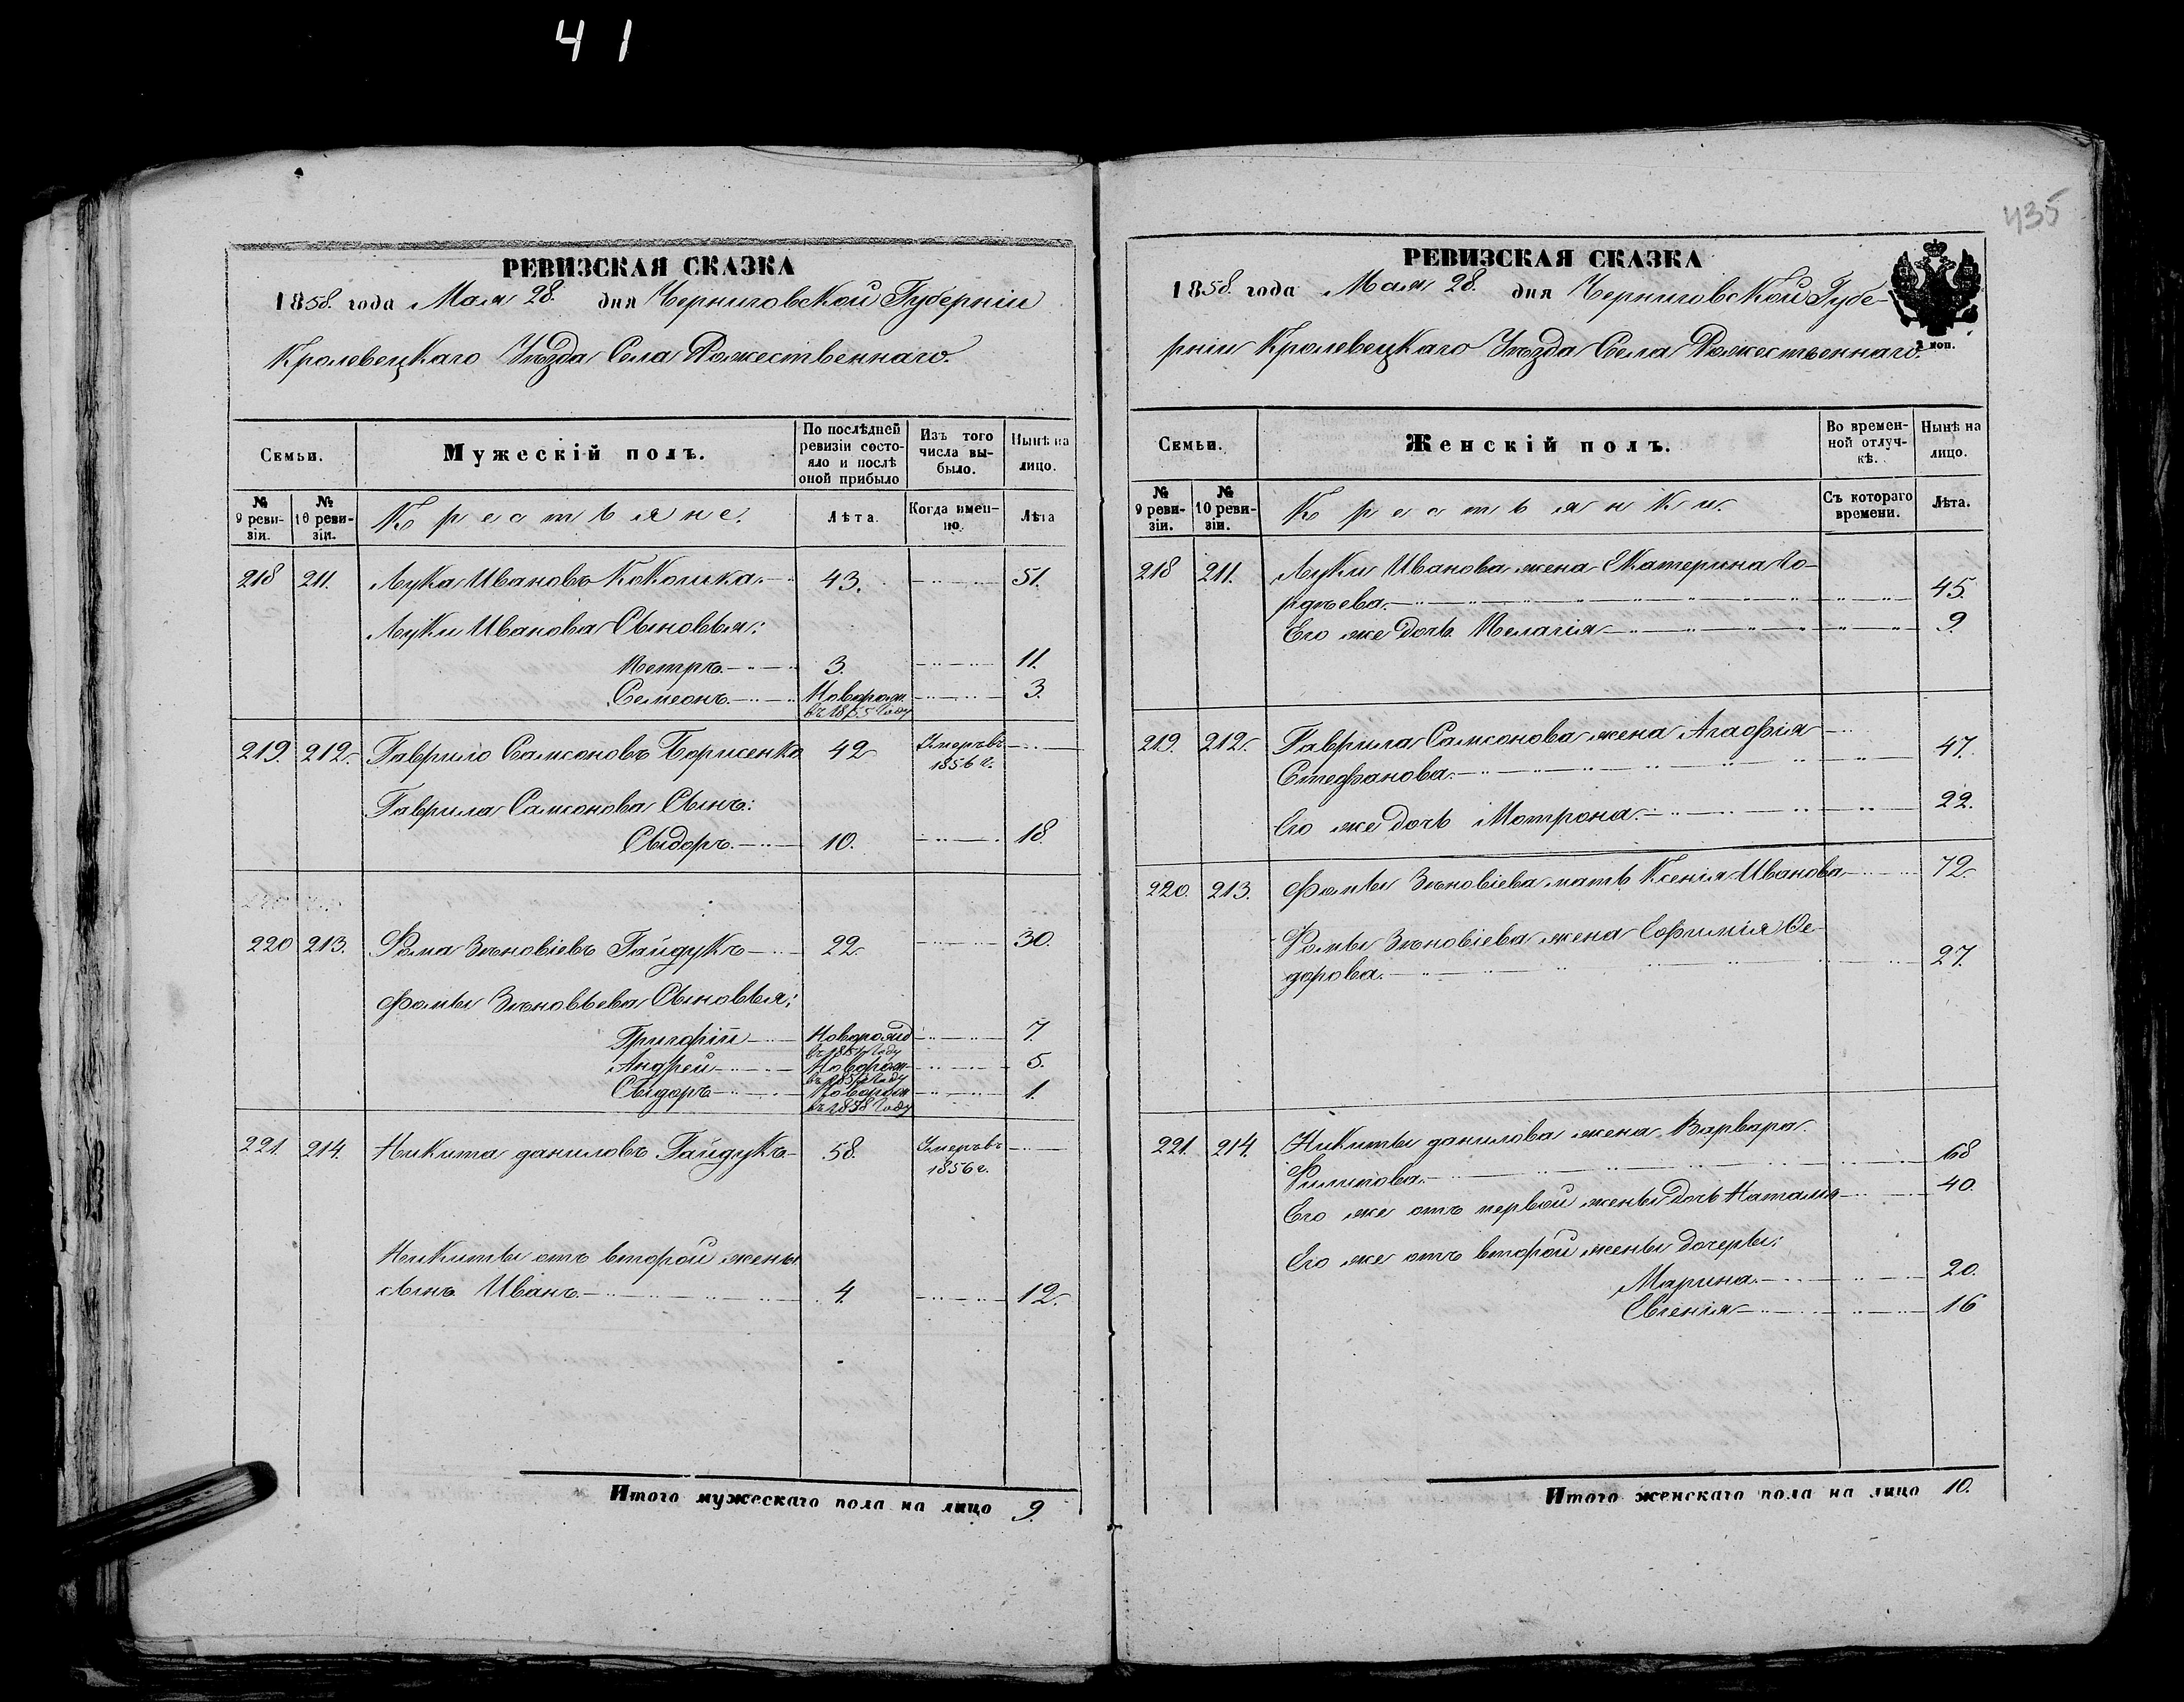 41
435
РЕВИЗСКАЯ СКАЗКА
1858. года Мая 28. дня Черниговской Губерніи
Кролевецкаго Уѣзда Села Рожественнаго.
Семьи.
Мужескій полъ.
По послѣдней ревизіи состояло и послѣ оной прибыло
Изъ того числа выбыло.
Нынѣ на лицо.
№ 9 ревизіи.
№ 10 ревизіи.
Крестьяне.
Лѣта.
Когда именно.
Лѣта
218 211. Лука Ивановъ Кокошка. 43. 51.
Луки Иванова Сыновья:
Петръ. 3. 11.
Семеонъ. Новорож. 3.
въ 1855 Году
219. 212. Гаврило Самсоновъ Борисенко 42 Умеръ въ
1856 г.
Гаврила Самсонова Сынъ:
Сыдоръ. 10. 18.
220 213. Фома Зѣновіевъ Гайдукъ 22. 30.
Фомы Зѣновьева Сыновья:
Григорій Новорожд 7.
въ 1851 Году
Андрей Новорож 5.
Сыдоръ Новорож 1.
въ 1858 Году
221. 214. Никита Даниловъ Гайдукъ 58. Умеръ въ
1856 г.
Никиты отъ второй жены
сынъ Иванъ. 4. 12.
Итого мужескаго пола на лицо 9.
РЕВИЗСКАЯ СКАЗКА
1858. года Мая 28. дня Черниговской Губе-
рніи Кролевецкаго Уѣзда Села Рожественнаго.
коп.
Семьи.
Женскій полъ.
Во временной отлучкѣ.
Нынѣ на лицо.
№ 9 ревизіи.
№ 10 ревизіи.
Крестьянки.
Съ котораго времени.
Лѣта.
218 211. Луки Иванова жена Екатерина Го-
рдѣева. 45.
Его же дочь Пелагія 9.
219. 212. Гаврила Самсонова жена Агафія
Стефанова. 47.
Его же дочь Мотрона. 22.
220. 213. Фомы Зѣновіева мать Ксенія Иванова 72
Фомы Зѣновіева жена Ефимія Ѳе-
дорова. 27.
221. 214. Никиты Данилова жена Варвара
Филипова. 68
Его же отъ первой жены дочь Наталья 40.
Его же отъ второй жены дочеры:
Марина. 20.
Евгенія 16
Итого женскаго пола на лицо 10.